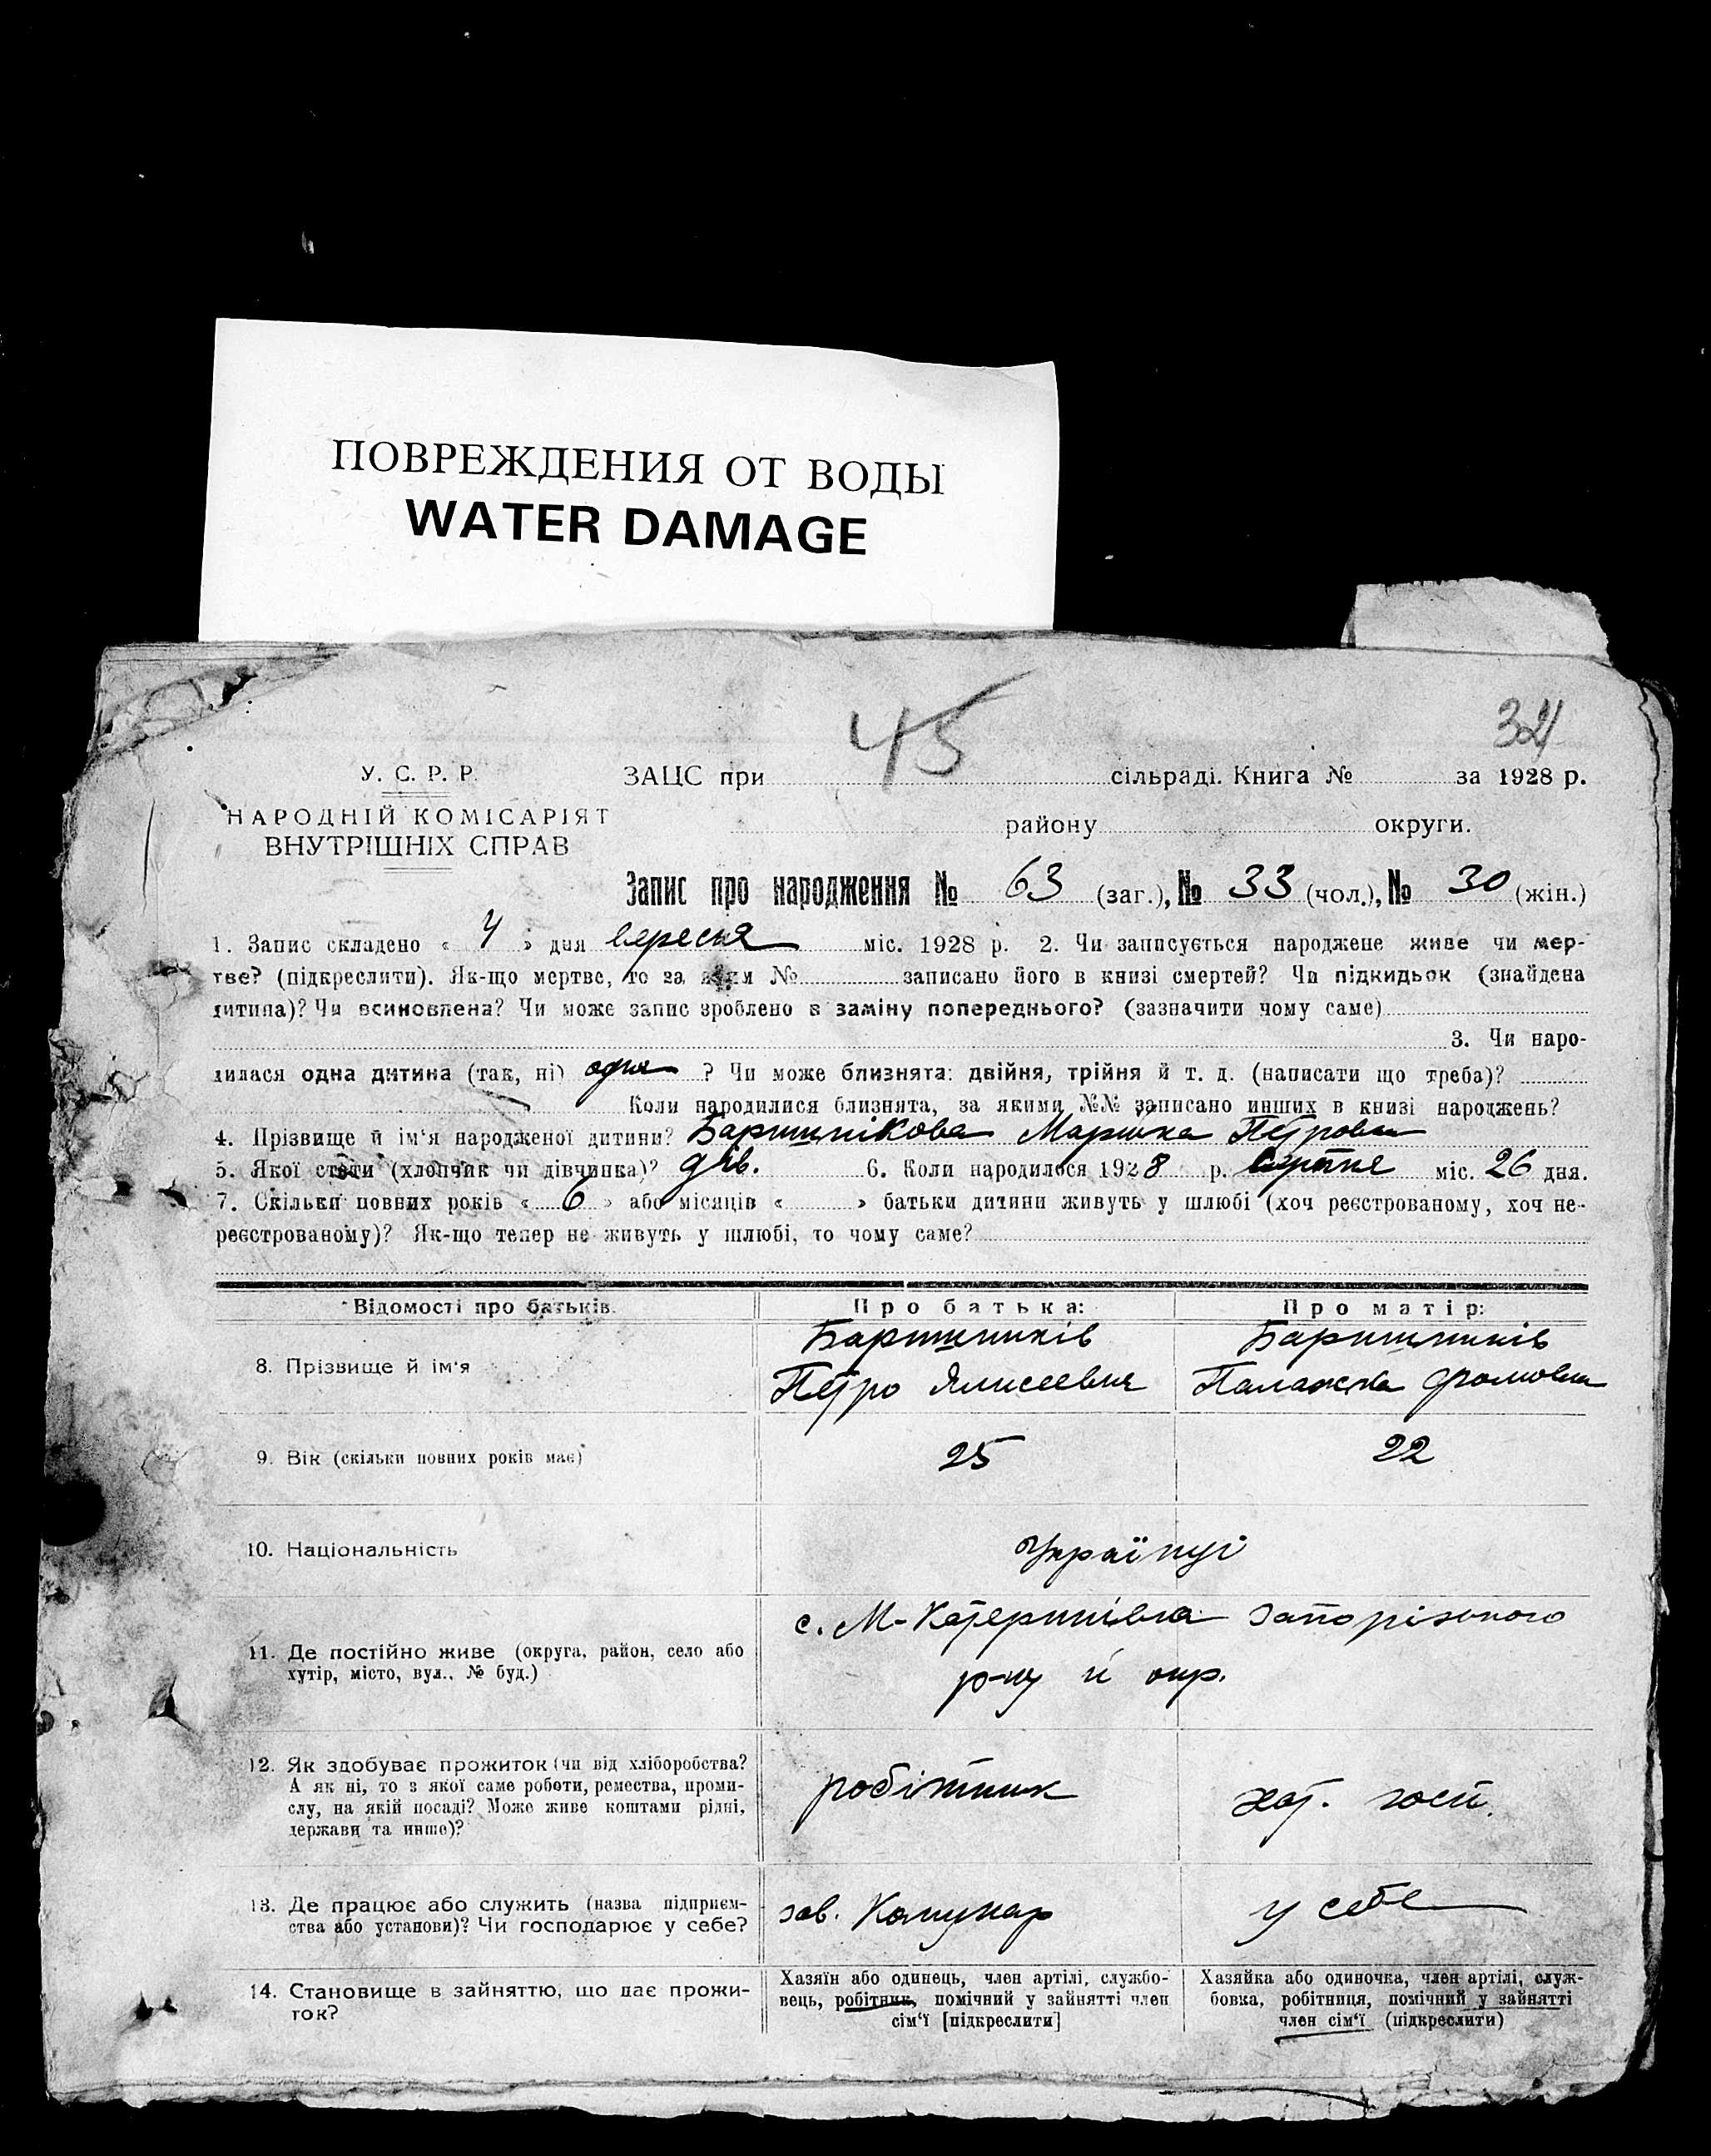 ПОВРЕЖДЕНИЯ ОТ ВОДЫ
WATER DAMAGE
45
У. С. Р. Р.
ЗАЦС при сільраді. Книга № за 1928 р.
НАРОДНІЙ КОМІСАРІЯТ
ВНУТРІШНІХ СПРАВ
району округи.
Запис про народження № 63 (заг.), № 33 (чол.), № 30 (жін.)
1. Запис складено « 4 » дня вересня міс. 1928 р. 2. Чи записується народжене живе чи мер-
тве? (підкреслити). Як-що мертве, то за яким № записано його в книзі смертей? Чи підкидьок (знайдена
дитина)? Чи всиновлена? Чи може запис зроблено в заміну попереднього? (зазначити чому саме)
3. Чи наро-
дилася одна дитина (так, ні) одна ? Чи може близнята: двійня, трійня й т. д. (написати що треба)?
Коли народилися близнята, за якими №№ записано инших в книзі народжень?
4. Прізвище й ім'я народженої дитини? Баришнікова Марійка Петровна
5. Якої стати (хлопчик чи дівчинка)? дів. 6. Коли народилося 1928 р. серпня міс. 26 дня.
7. Скільки повних років « 6 » або місяців « » батьки дитини живуть у шлюбі (хоч реєстрованому, хоч не-
реєстрованому)? Як-що тепер не живуть у шлюбі, то чому саме?
Відомості про батьків. Про батька: Про матір:
Баришників Баришників
8. Прізвище й ім'я
Петро Палажка
9. Вік (скільки повних років має) 25 22
10. Національність Українці
с. М-Катеринівка Запорізького
11. Де постійно живе (округа, район, село або
хутір, місто, вул., № буд.)
р-ну й окр.
12. Як здобуває прожиток (чи від хліборобства?
А як ні, то з якої саме роботи, ремества, проми-
слу, на якій посаді? Може живе коштами рідні,
держави та инше)?
робітник хат. госп.
13. Де працює або служить (назва підприєм-
ства або установи)? Чи господарює у себе?
зав. Комунар у себе
14. Становище в зайняттю, що дає прожи-
ток?
Хазяїн або одинець, член артілі, службо-
вець, робітник, помічний у зайнятті член
сім'ї [підкреслити]
Хазяйка або одиночка, член артілі, служ-
бовка, робітниця, помічний у зайнятті
член сім'ї (підкреслити)